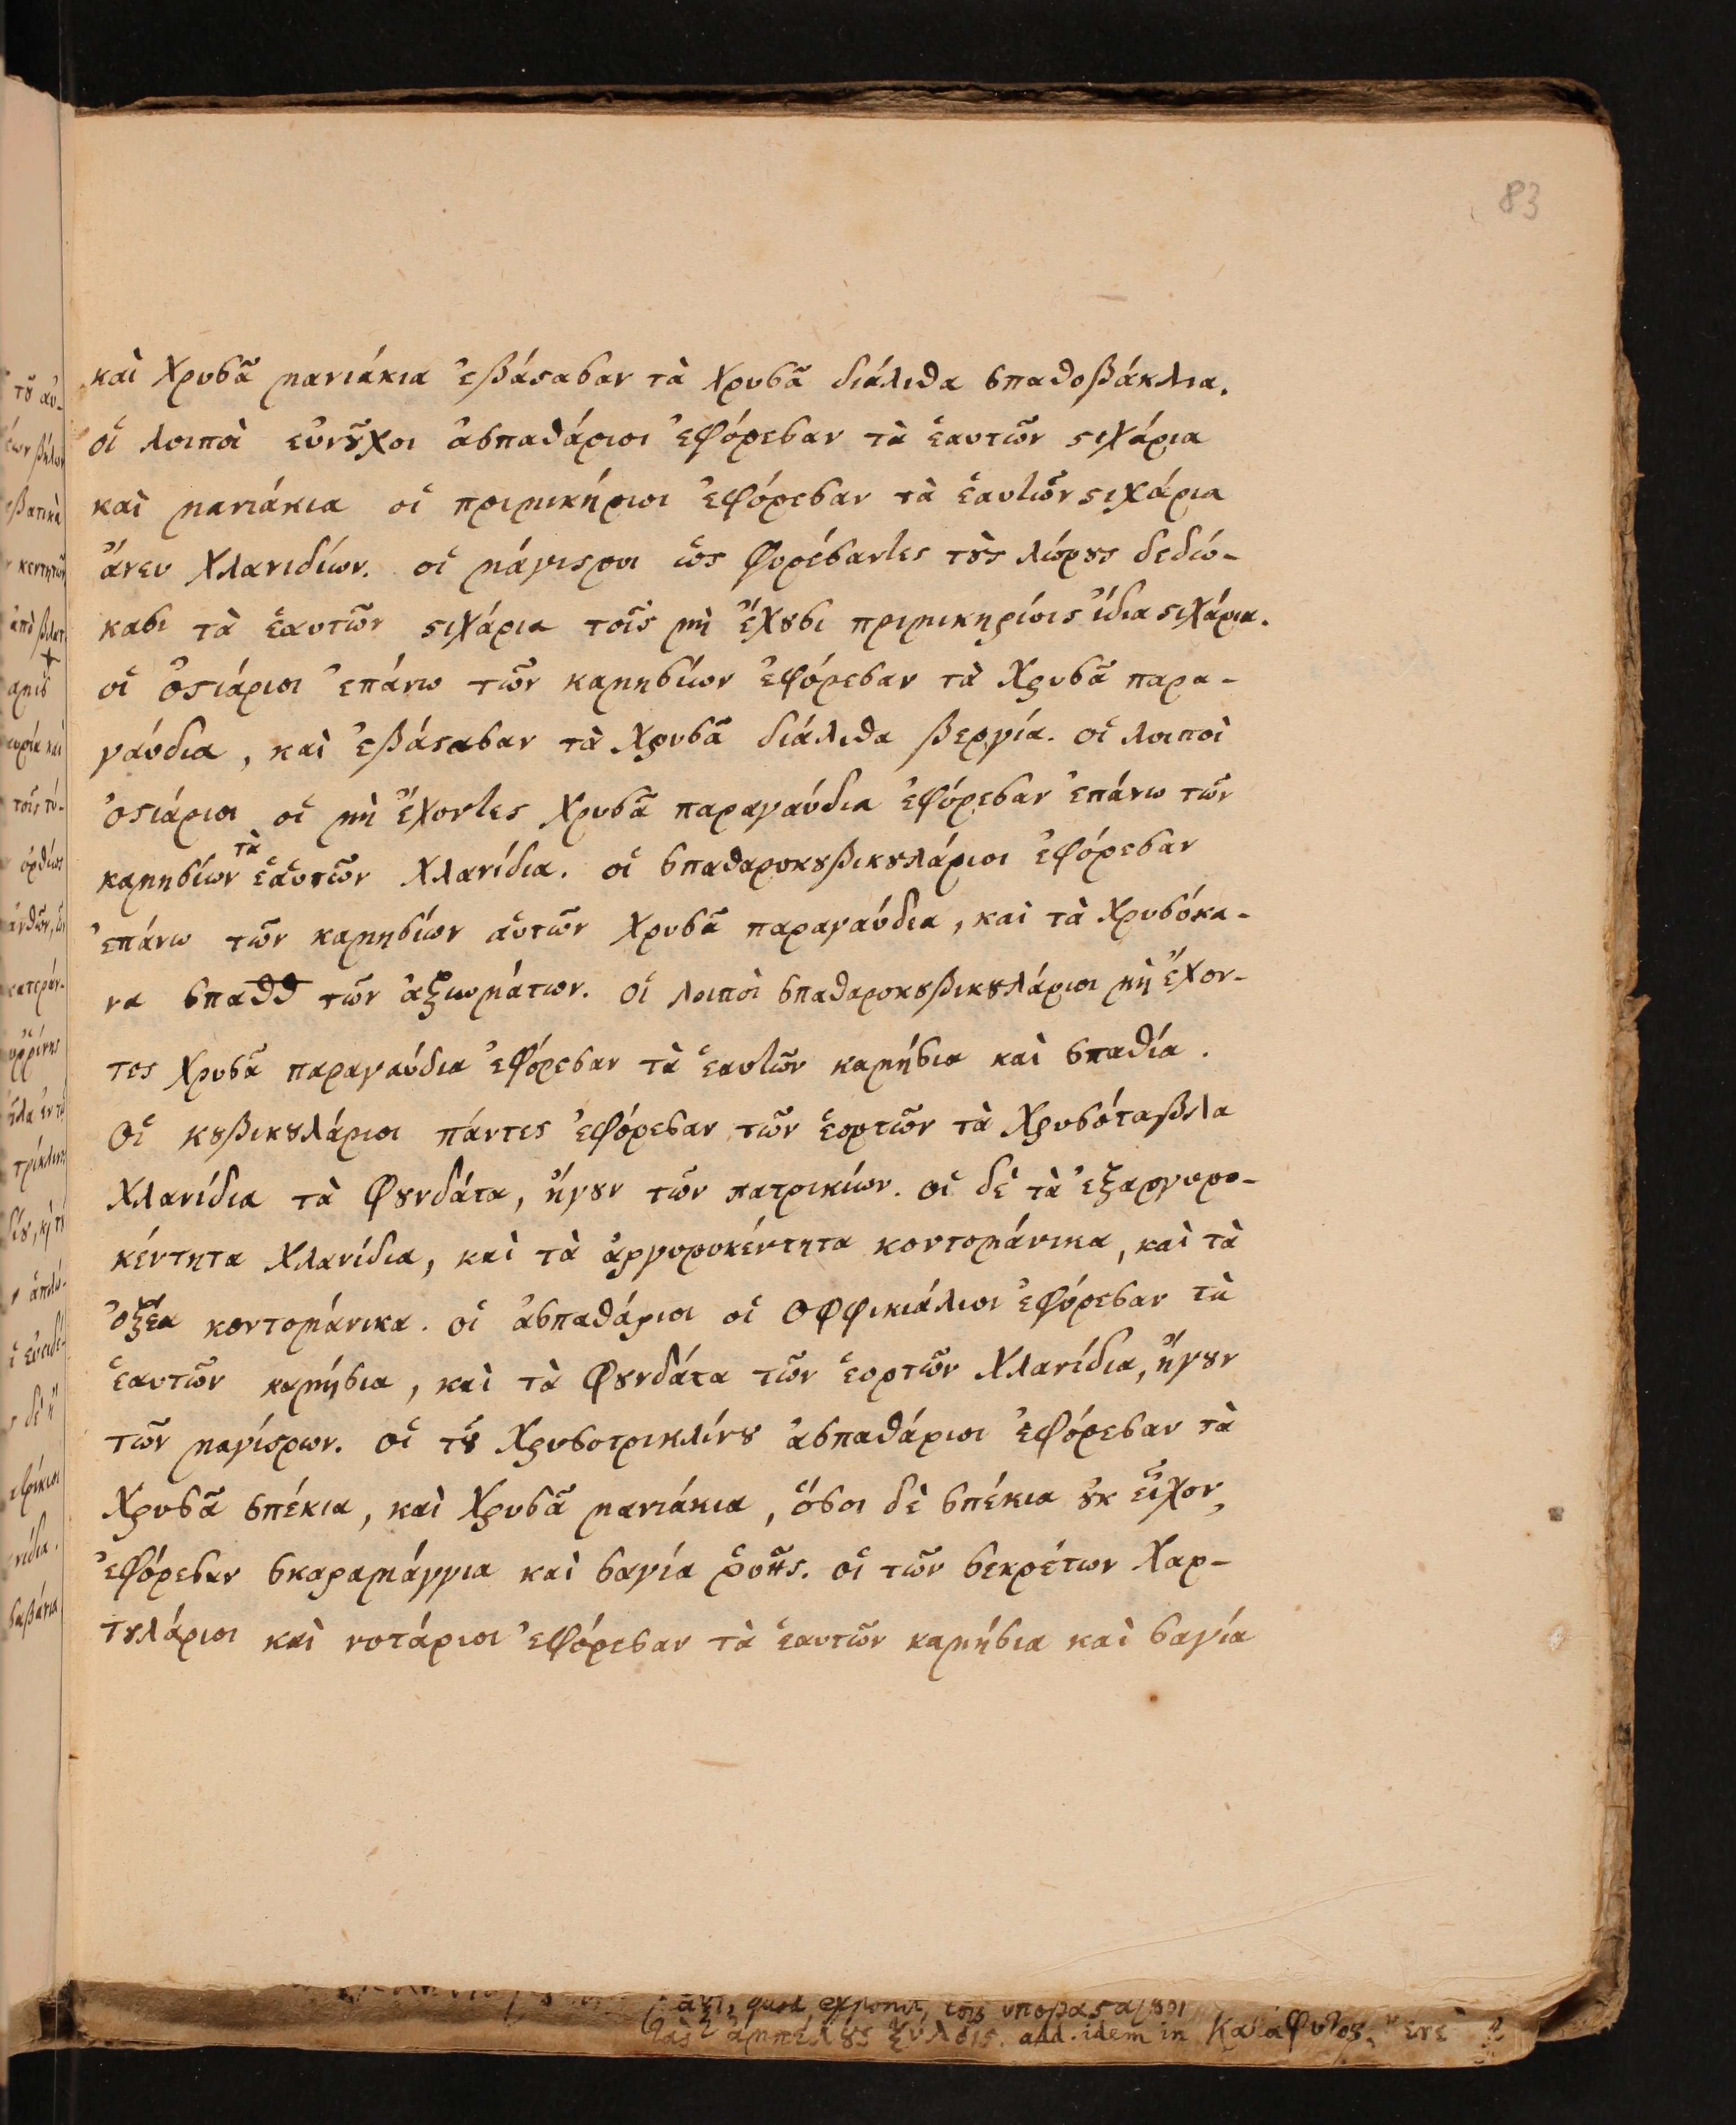 83
καὶ χρυσᾶ μανιάκια ἐβάσασαν τὰ χρυσᾶ διάλιθα σπαθοβάκλια.
οἱ λοιποὶ εὐνȣ͂χοι ἀσπαθάριοι ἐφόρεσαν τὰ ἑαυτῶν ϛιχάρια
καὶ μανιάκια οἱ πριμικήριοι ἐφόρεσαν τὰ ἑαυτῶν ϛιχάρια
ἄνευ χλανιδίων. οἱ μάγιϛροι ὡς φορέσαντες τȣ̀ς λώρȣς δεδώ-
κασι τὰ ἑαυτῶν ϛιχάρια τοῖς μὴ ἔχȣσι πριμικηρίοις ἴδια ϛιχάρια.
οἱ ὀϛιάριοι ἐπάνω τῶν καμησίων ἐφόρεσαν τὰ χρυσᾶ παρα-
γαύδια, καὶ ἐβάϛασαν τὰ χρυσᾶ διάλιθα βεργία. οἱ λοιποὶ
ὀϛιάριοι οἱ μὴ ἔχοντες χρυσᾶ παραγαύδια ἐφόρεσαν ἐπάνω τῶν
καμησίων τὰ ἑαυτῶν χλανίδια. οἱ σπαθαροκȣβικȣλάριοι ἐφόρεσαν
ἐπάνω τῶν καμησίων αὐτῶν χρυσᾶ παραγαύδια, καὶ τὰ χρυσόκα-
να σπαθθ τῶν ἀξιωμάτων. οἱ λοιποὶ σπαθαροκȣβικȣλάριοι μὴ ἔχον-
τες χρυσᾶ παραγαύδια ἐφόρεσαν τὰ ἑαυτῶν καμήσια καὶ σπαθία.
Οἱ κȣβικȣλάριοι πάντες ἐφόρεσαν τῶν ἑορτῶν τὰ χρυσόταβλα
χλανίδια τὰ φȣνδάτα, ἤγȣν τῶν πατρικίων. οἱ δὲ τὰ ἐξαργυρο-
κέντητα χλανίδια, καὶ τὰ ἀργυροκέντητα κοντομάνικα, καὶ τὰ
ὀξέα κοντομάνικα. οἱ ἀσπαθάριοι οἱ ὀφφικιάλιοι ἐφόρεσαν τὰ
ἑαυτῶν καμήσια, καὶ τὰ φȣνδάτα τῶν ἑορτῶν χλανίδια, ἤγȣν
τῶν μαγίϛρων. οἱ τȣ͂ χρυσοτρικλίνȣ ἀσπαθάριοι ἐφόρεσαν τὰ
χρυσᾶ σπέκια, καὶ χρυσᾶ μανιάκια, ὅσοι δὲ σπέκια ȣ̓κ εἶχον,
ἐφόρεσαν σκαραμάγγια καὶ σαγία ῥοῆς. οἱ τῶν σεκρέτων χαρ-
τȣλάριοι καὶ νοτάριοι ἐφόρεσαν τὰ ἑαυτῶν καμήσια καὶ σαγία
ἀμπέλȣς ξύλοις. add. idem in